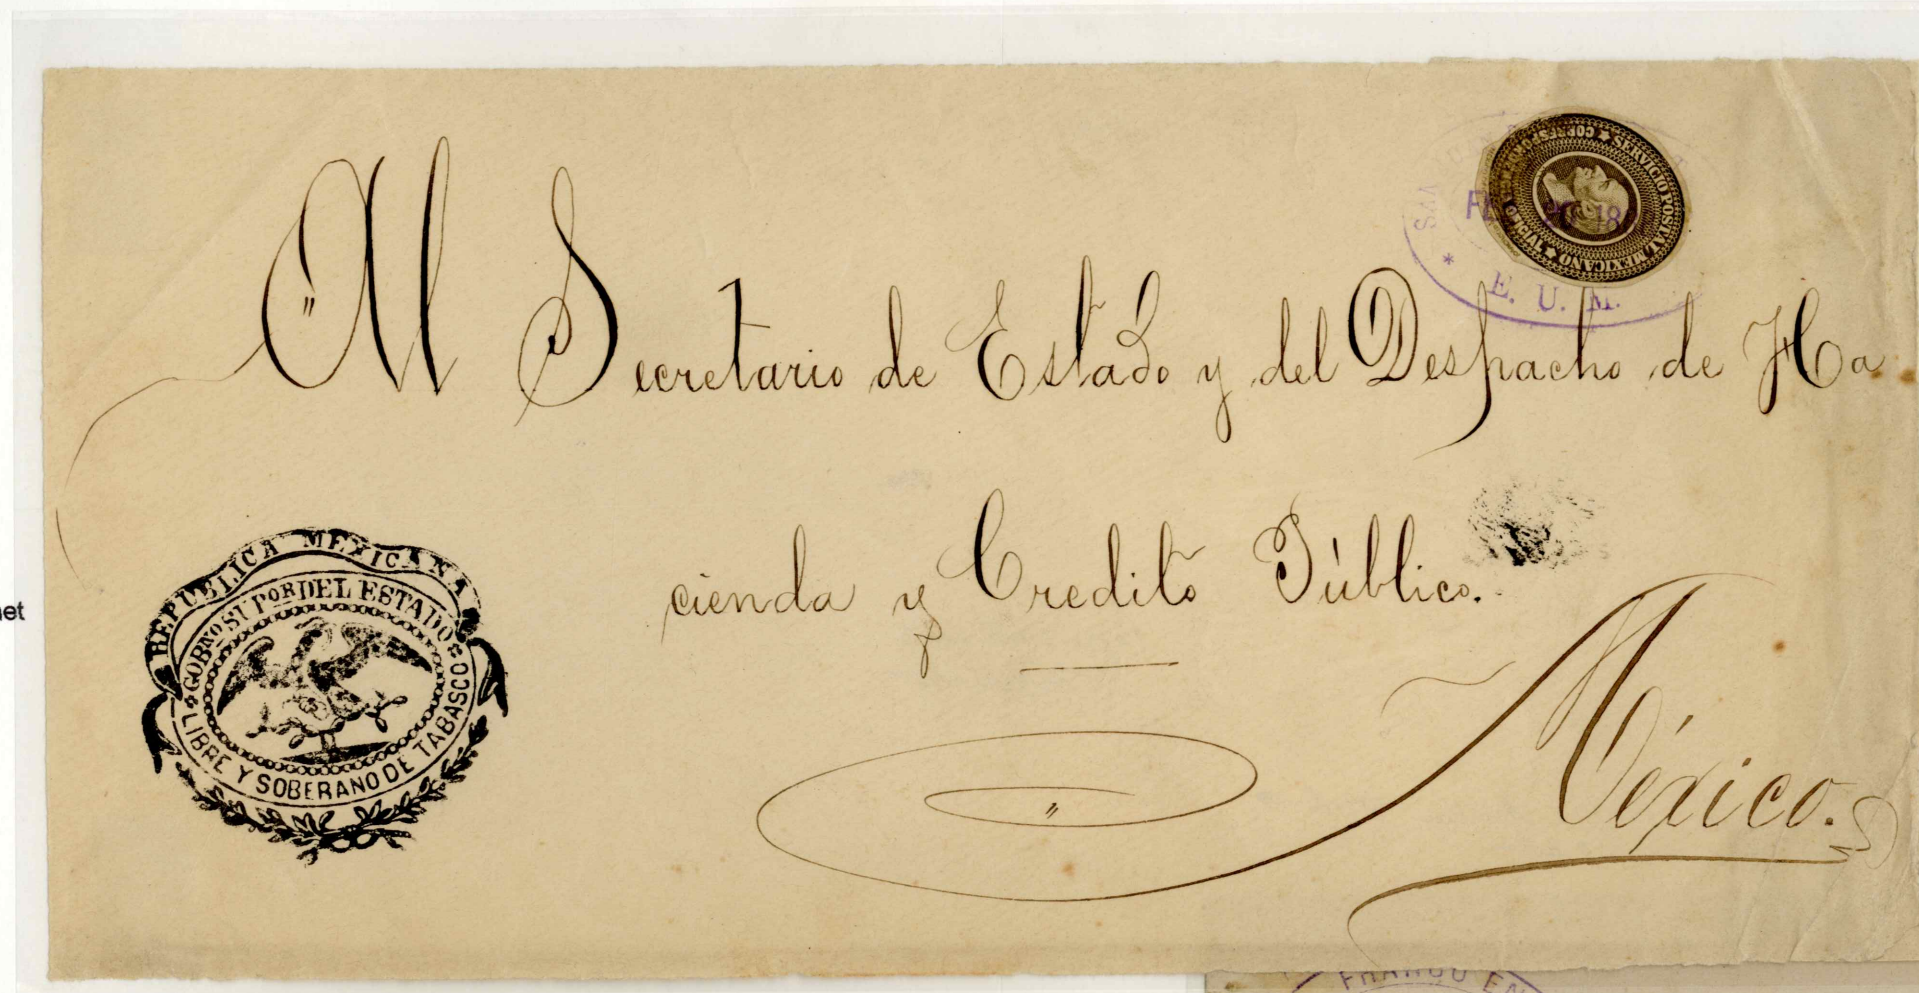 SERVICIO POSTAL MEXICANO
SAN JU
FE 18
E. U. M.
Al Secretario de Estado y del Despacho de Ha
cienda y Credito Público.
México.
REPUBLICA MEXICANA
GOBNO SUPOR DEL ESTADO
LIBRE Y SOBERANO DE TABASCO
net
FRANCO EN